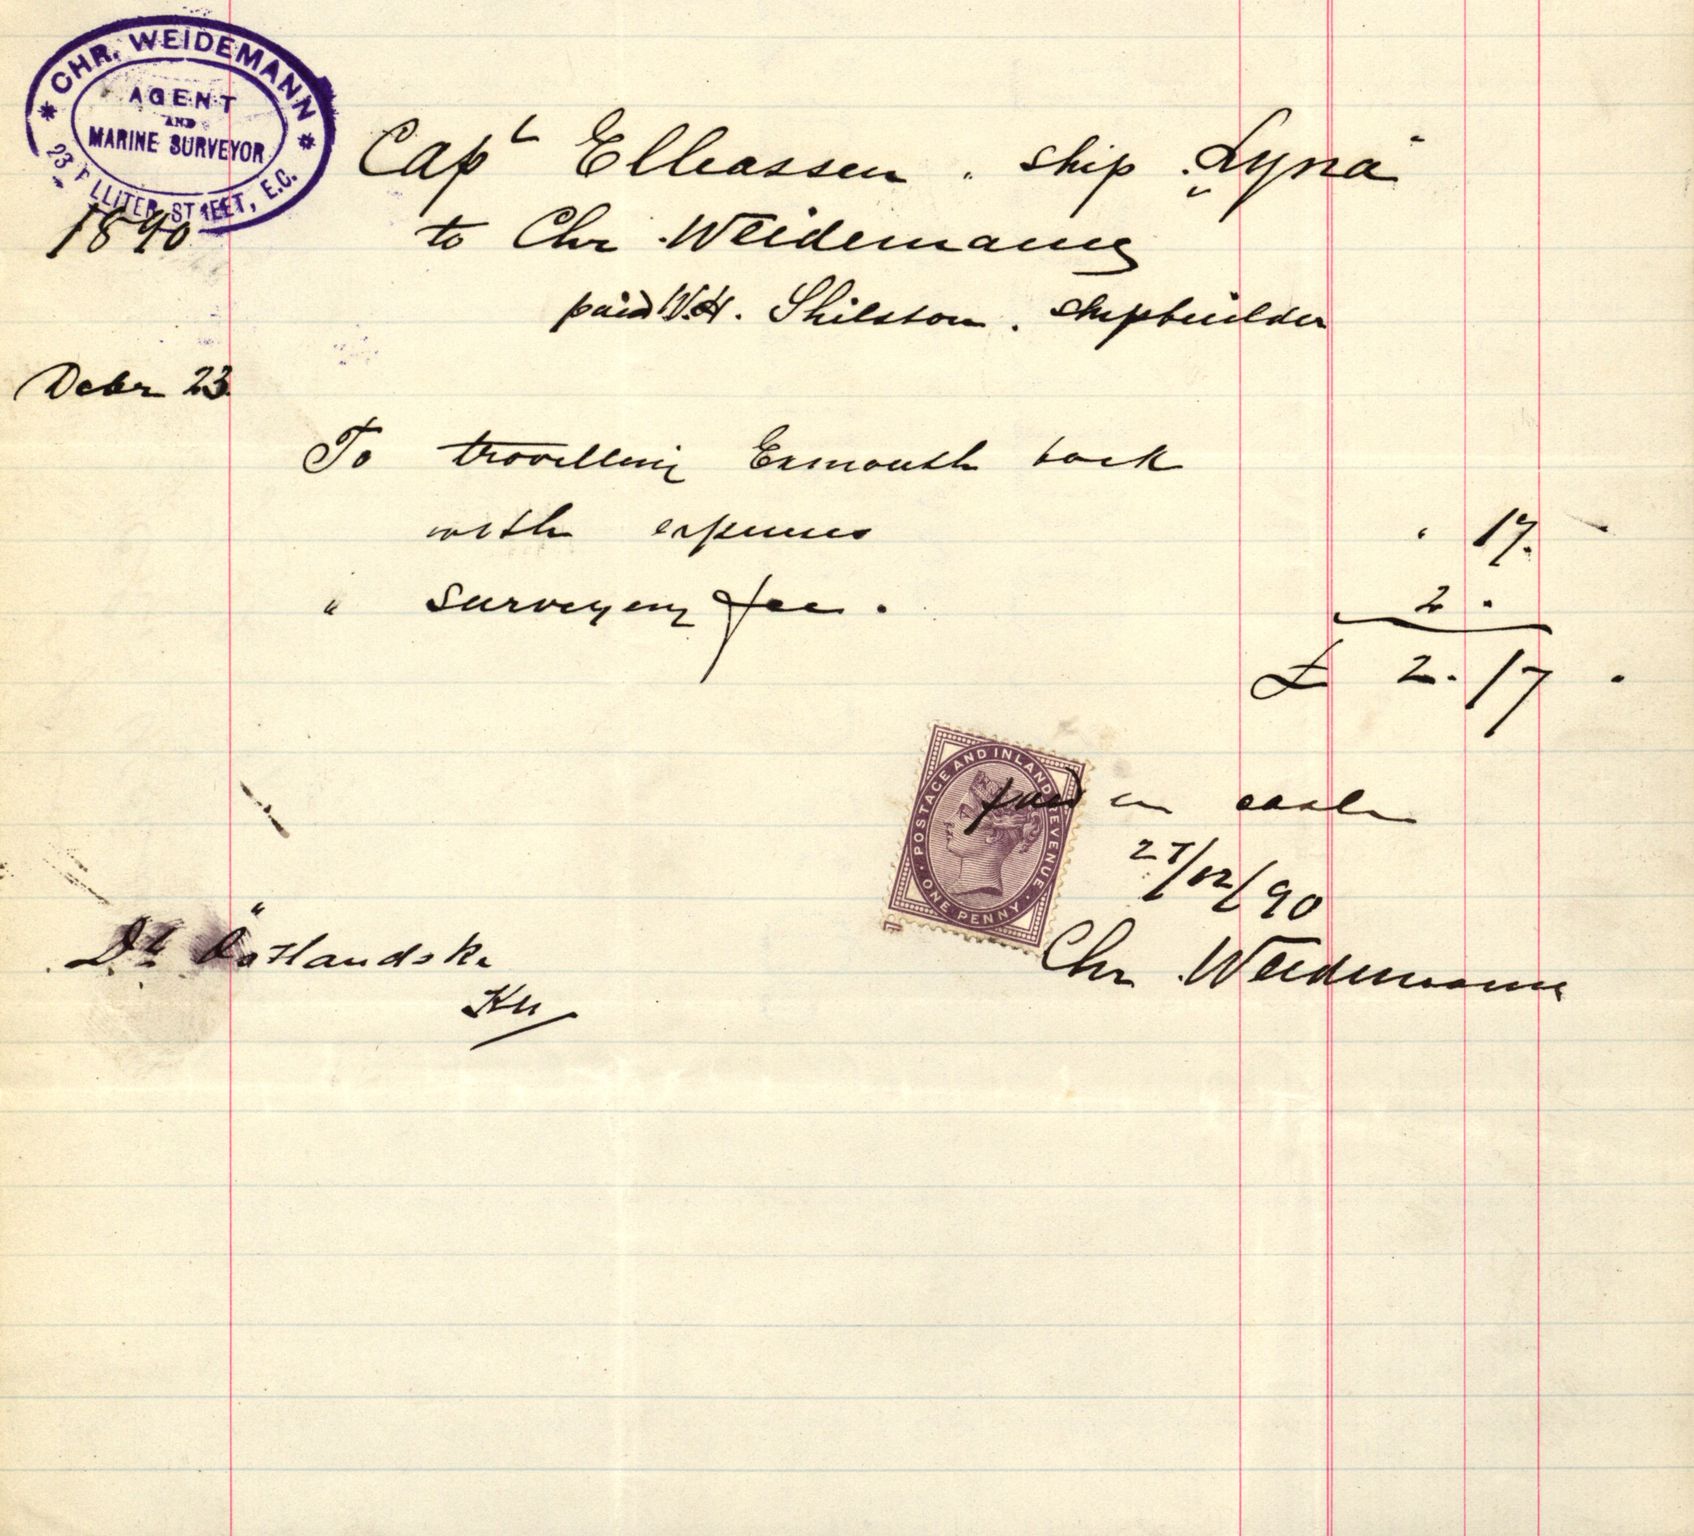 CHR. WEIDEMANN
AGENT
AND
MARINE SURVEYOR
23 LLITER STREET, E.C.
1890
Capt Elleassen . ship "Lyna"
to Chr Weidemann
paid W.H. Shilston . shipbuilder
Decbr 23
To travelling Exmouth back
with expenses " 17. -
" surveying fee . 2 .
£ 2. 17 .
POSTAGE AND INLAND REVENUE
ONE PENNY
paid in cash
27/12/90
Chr Weidemann